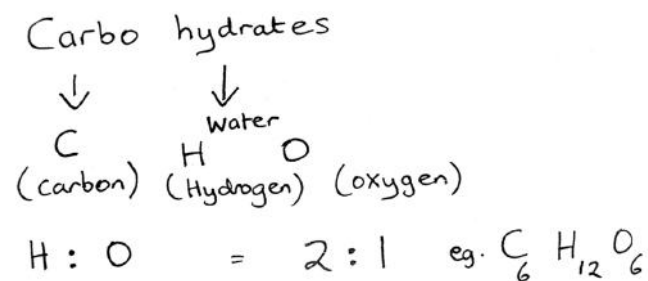 Carbo hydrates
↓ ↓
water
C H O
(carbon) (Hydrogen) (oxygen)
H : O = 2 : 1 eg. C₆ H₁₂ O₆